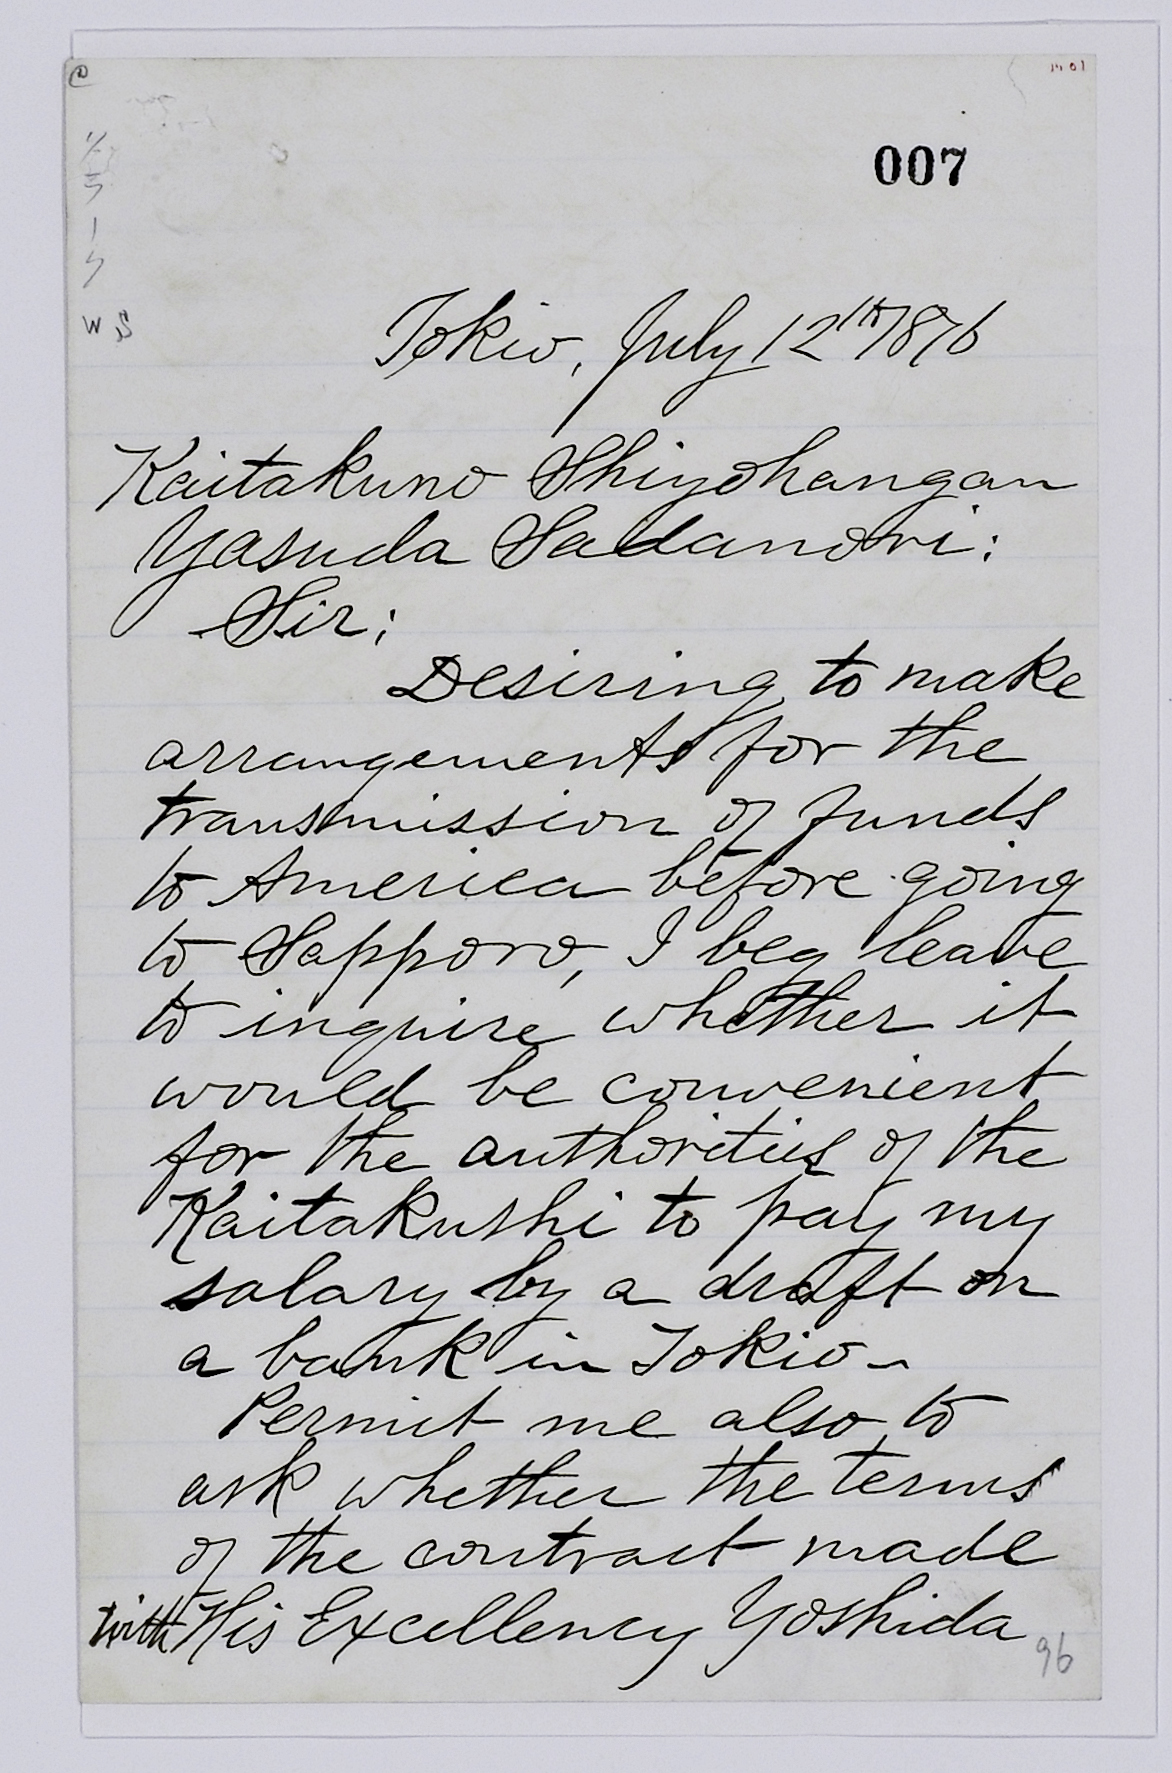 007
W S
Tokio, July 12th 1876
Kaitakuno Shiyohangan
Yasuda Sadanori:
Sir:
Desiring to make
arrangements for the
transmission of funds
to America before going
to Sapporo, I beg leave
to inquire whether it
would be convenient
for the authorities of the
Kaitakushi to pay my
salary by a draft on
a bank in Tokio.
Permit me also to
ask whether the terms
of the contract made
with His Excellency Yoshida
96